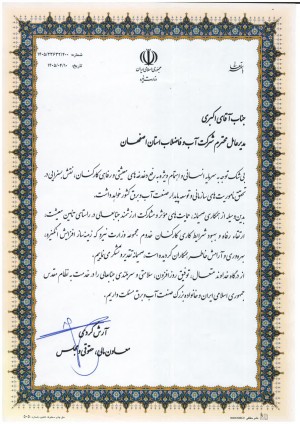 شماره: ۱۴۰۵/۲۳۶۳۲/۴۰۰
تاریخ: ۱۴۰۵/۰۲/۱۰
جمهوری اسلامی ایران
وزارت نیرو
جناب آقای اکبری
مدیرعامل محترم شرکت آب و فاضلاب استان اصفهان
بی‌شک توجه به سرمایه انسانی و اهتمام ویژه به رفع دغدغه‌های معیشتی و رفاهی کارکنان، نقش بسزایی در
تحقق مأموریت‌های سازمانی و توسعه پایدار صنعت آب و برق کشور خواهد داشت.
بدین‌وسیله از همکاری صمیمانه، حمایت‌های مؤثر و مشارکت ارزشمند جنابعالی در راستای تأمین معیشت،
ارتقاء رفاه و بهبود شرایط کاری کارکنان خدوم مجموعه وزارت نیرو که زمینه‌ساز افزایش انگیزه،
بهره‌وری و آرامش خاطر همکاران گردیده است، صمیمانه تقدیر و تشکر می‌نمایم.
از درگاه خداوند متعال، توفیق روزافزون، سلامتی و سربلندی جنابعالی را در خدمت به نظام مقدس
جمهوری اسلامی ایران و خانواده بزرگ صنعت آب و برق مسئلت داریم.
آرش کردی
معاون مالی، حقوقی و مجلس